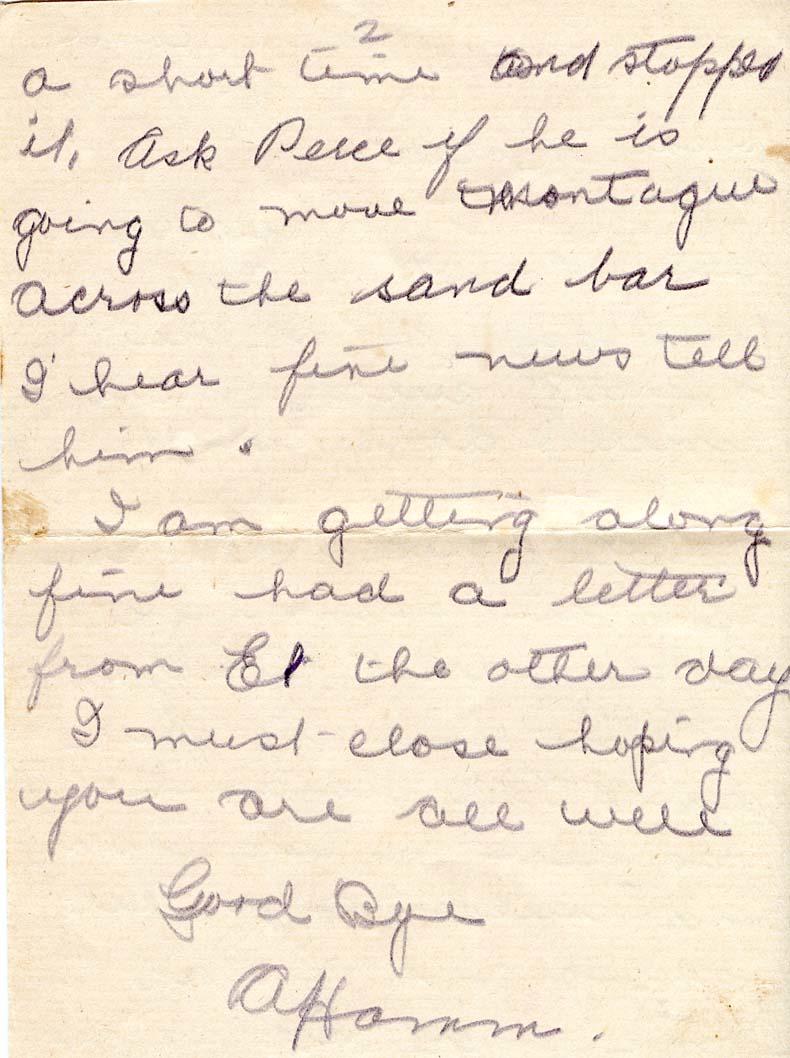 2
a short time and stopped
it, Ask Perce if he is
going to move Montague
across the sand bar
I hear fine news tell
him.
I am getting along
fine had a letter
from El the other day
I must close hoping
you are all well
Good Bye
A Hamm.